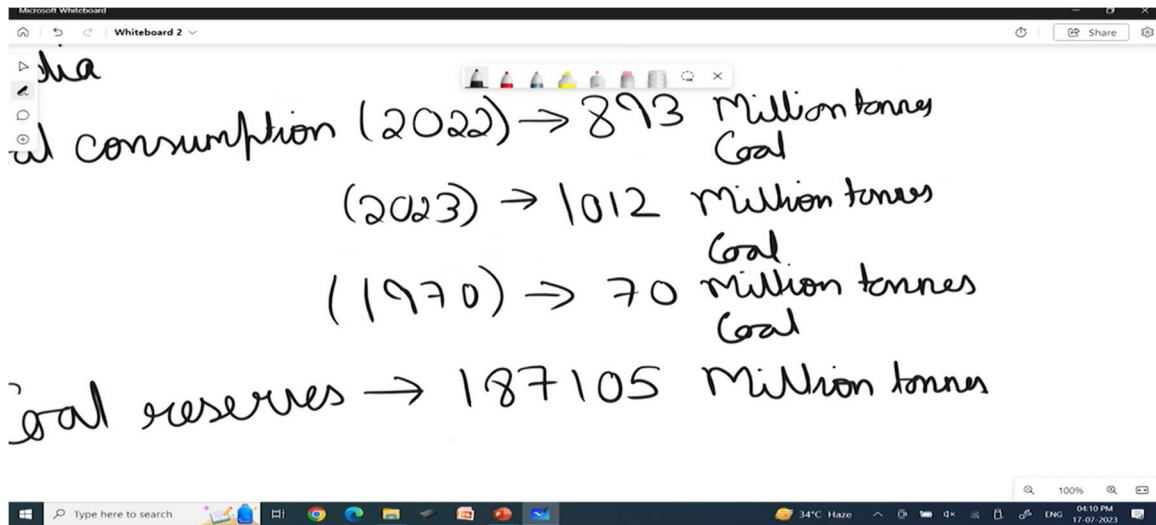 Microsoft Whiteboard
Whiteboard 2
Share
dia
al consumption (2022) → 893 Million tonnes
Coal
(2023) → 1012 Million tonnes
Coal
(1970) → 70 Million tonnes
Coal
Coal reserves → 187105 Million tonnes
100%
Type here to search
34°C Haze
ENG
04:10 PM
17-07-2023